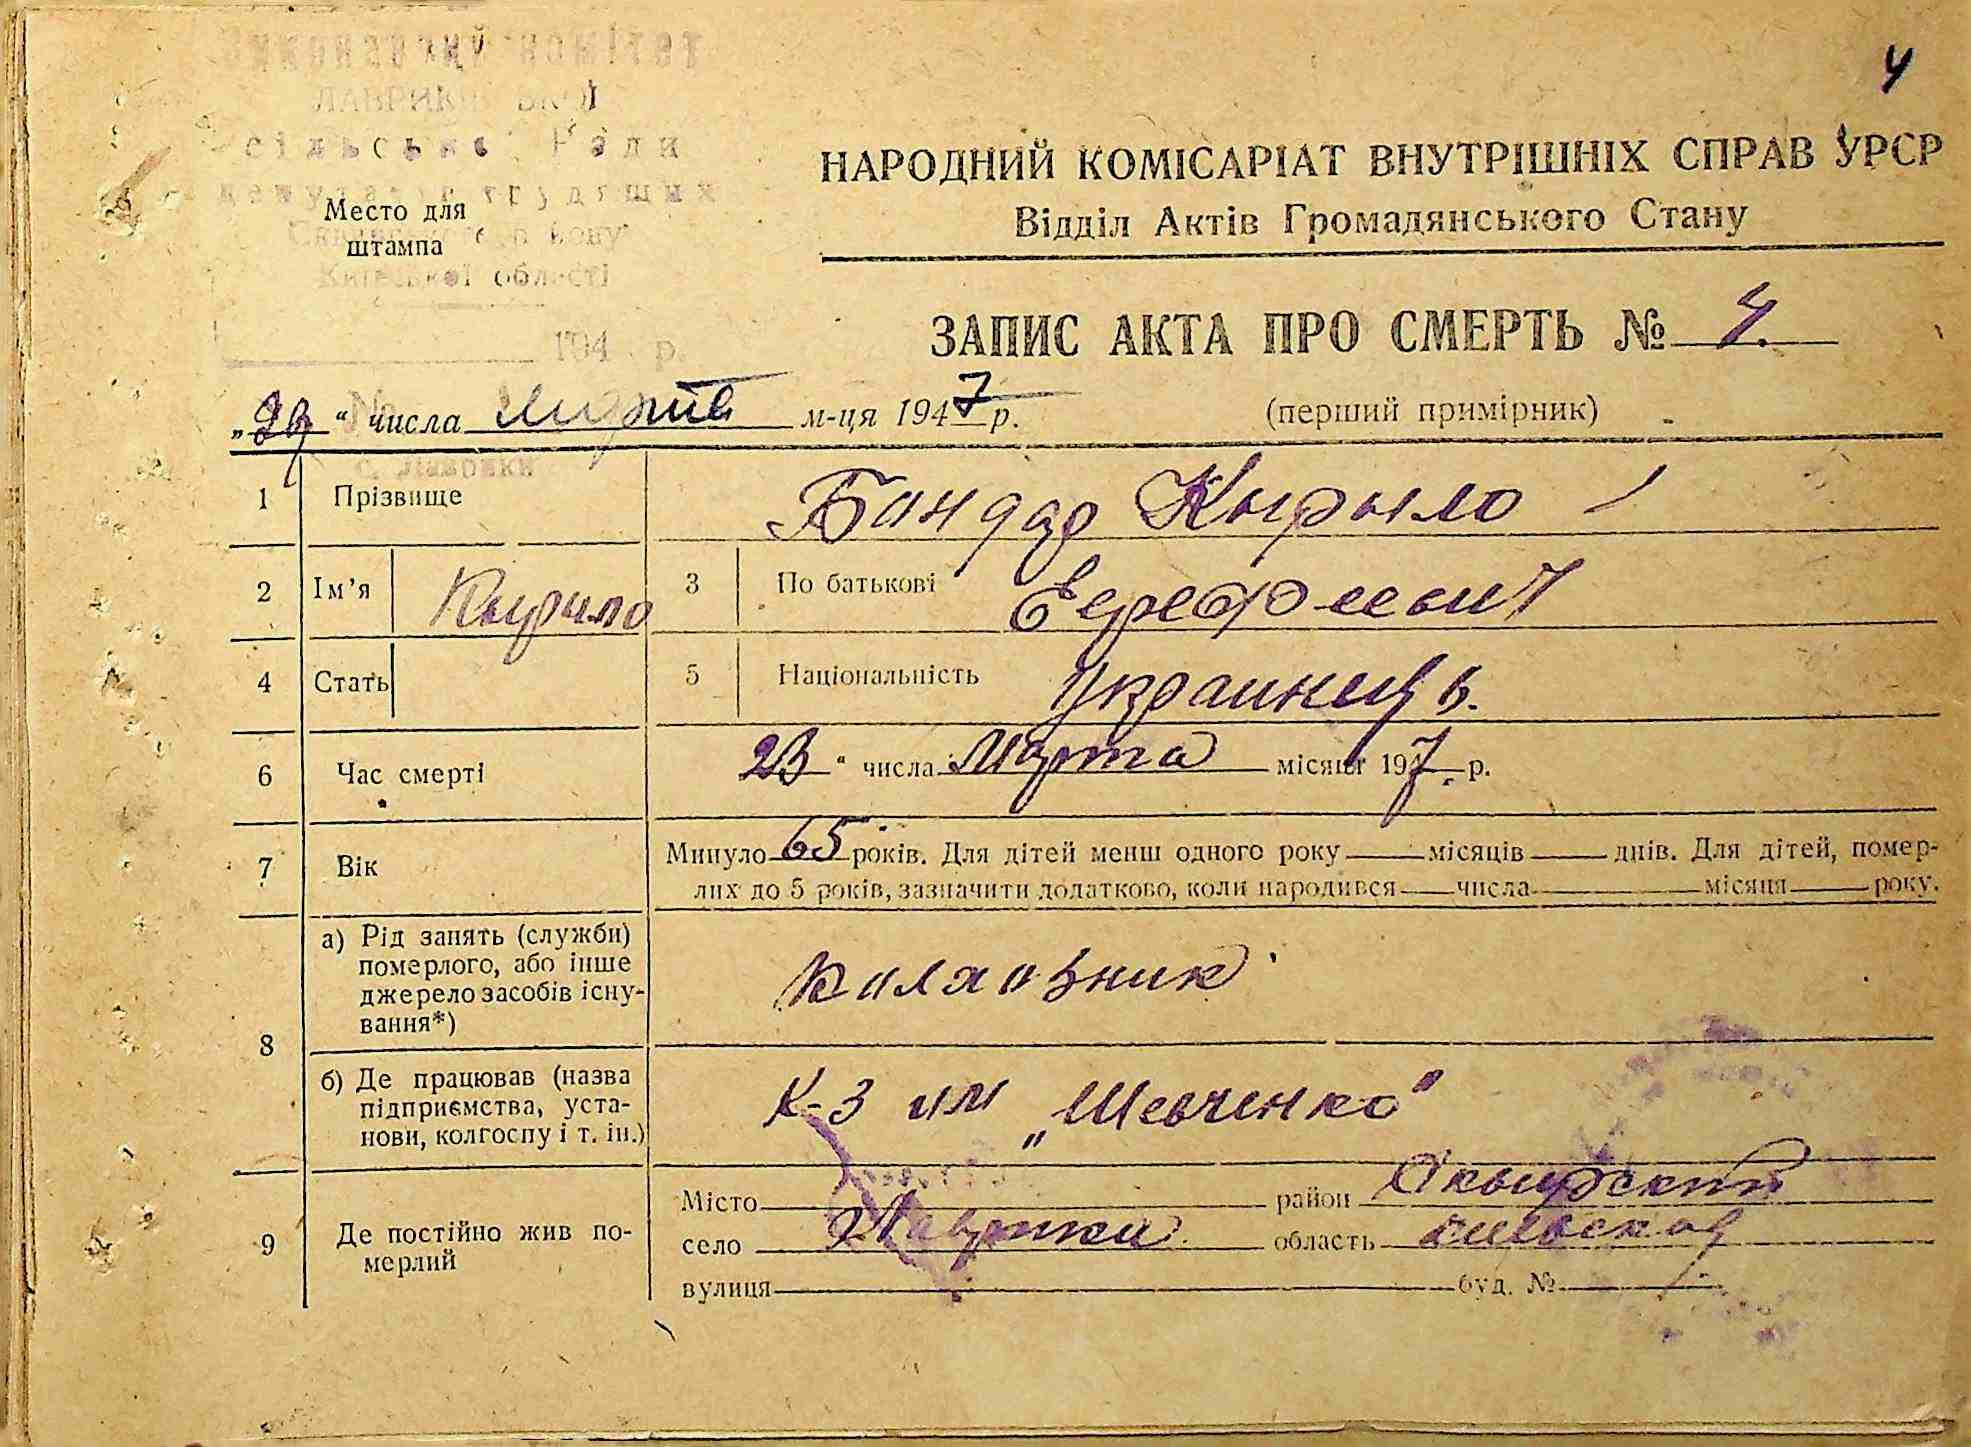 4
виконавчий комітет
ЛАВРИКІВСЬКОЇ
сільської Ради
депутатів трудящих
Київської області
194 р.
Место для
штампа
НАРОДНИЙ КОМІСАРІАТ ВНУТРІШНІХ СПРАВ УРСР
Відділ Актів Громадянського Стану
ЗАПИС АКТА ПРО СМЕРТЬ № 4.
„ “ числа марта м-ця 1947 р. (перший примірник)
1 Прізвище Бондар Кырыло
2 Ім’я Кырило 3 По батькові
4 Стать 5 Національність украинець.
6 Час смерті 23 “ числа Марта місяця 1947. р.
7 Вік Минуло 65 років. Для дітей менш одного року місяців днів. Для дітей, помер-
лих до 5 років, зазначити додатково, коли народився числа місяця року.
8 а) Рід занять (служби)
померлого, або інше
джерело засобів існу-
вання*)
Колхозник
б) Де працював (назва
підприємства, уста-
нови, колгоспу і т. ін.)
К-З им „Шевченко“
9 Де постійно жив по-
мерлий
Місто район Сквырский
село Лаврики область киевской
вулиця буд. №